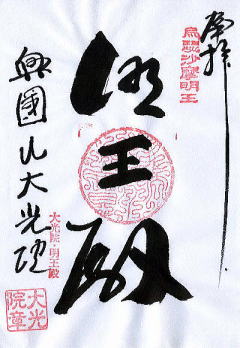 奉拝
烏芻沙摩明王
明王殿
大光院・明王殿
興國山大光院
大光
院章